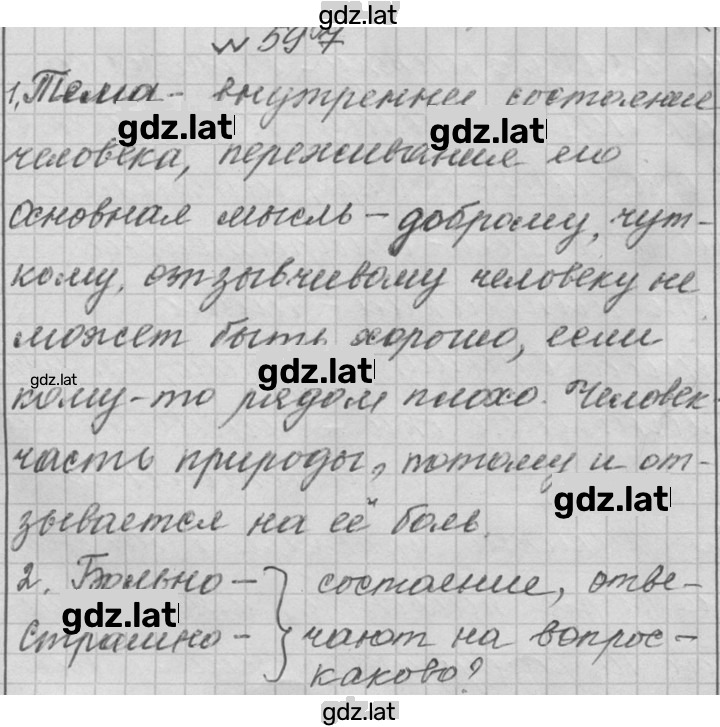 gdz.lat
№ 597
1. Тема - внутреннее состояние
gdz.lat gdz.lat
человека, переживание его
Основная мысль - доброму, чут-
кому, отзывчивому человеку не
может быть хорошо, если
gdz.lat gdz.lat
кому-то рядом плохо. Человек-
часть природы, потому и от-
gdz.lat
зывается на её боль.
2. Больно - } состояние, отве-
gdz.lat
Страшно - } чают на вопрос-
каково?
gdz.lat